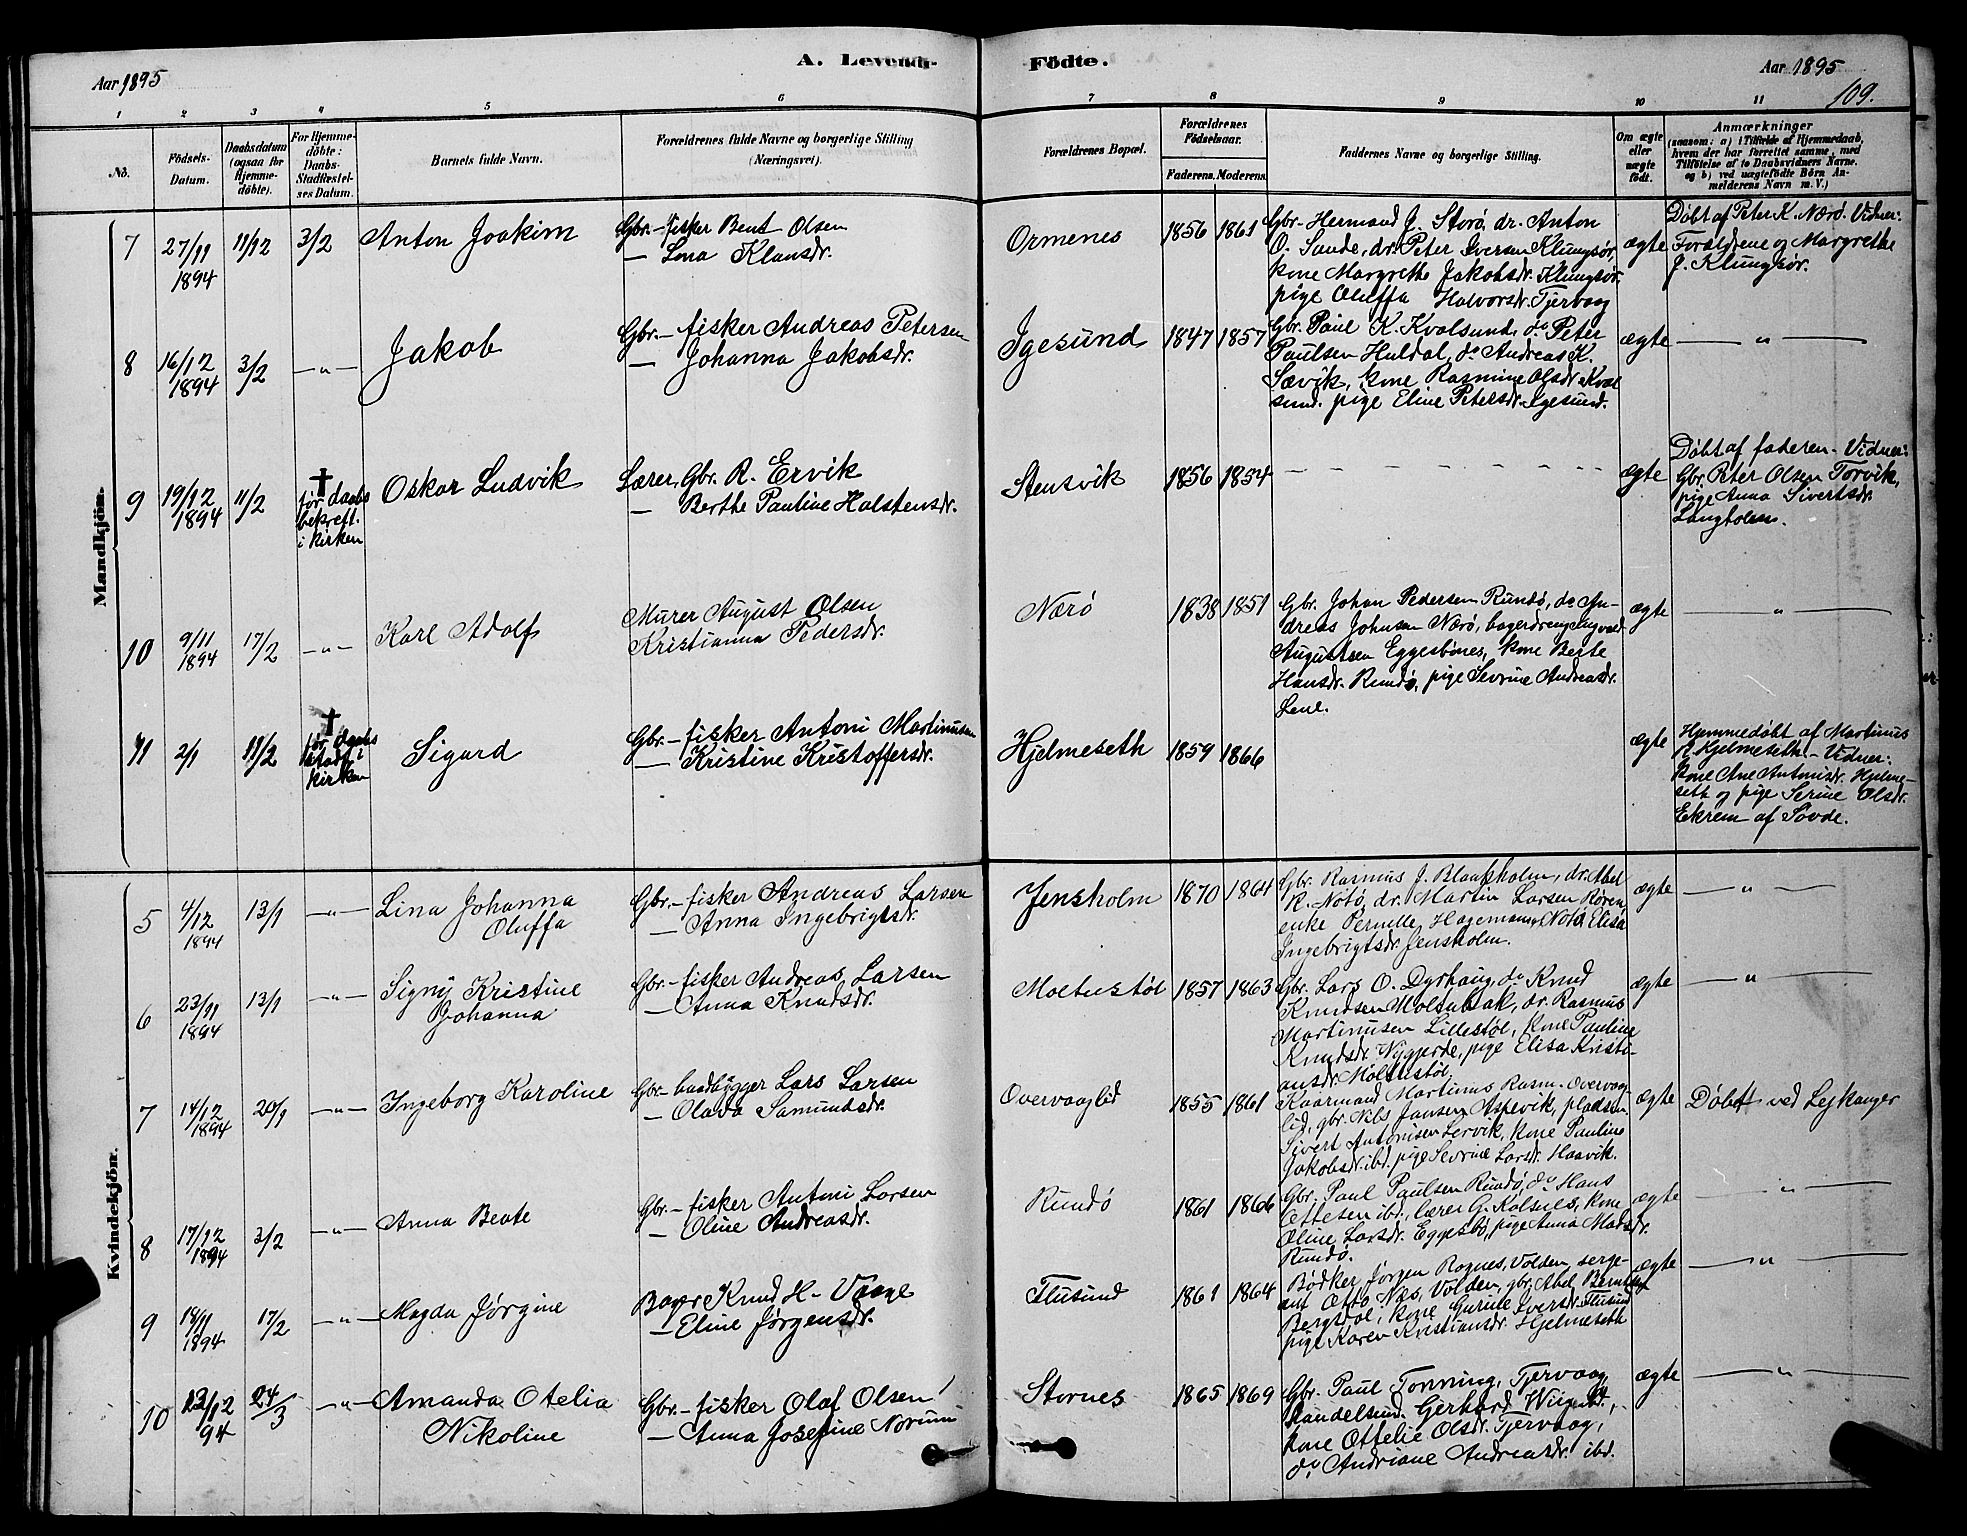 A. Levende Födte.
Aar 1895
Aar 1895
109.
1 2 3 4 5 6 7 8 9 10 11
No.
Födsels-
Datum.
Daabsdatum
(ogsaa for
Hjemme-
döbte).
For Hjemme-
döbte:
Daabs-
Stadfæstel-
ses Datum.
Barnets fulde Navn.
Forældrenes fulde Navne og borgerlige Stilling
(Næringsvei).
Forældrenes Bopæl.
Forældrenes
Födselsaar.
Faderens. Moderens.
Faddernes Navne og borgerlige Stilling.
Om ægte
eller
uægte
födt.
Anmærkninger
(saasom: a) i Tilfælde af Hjemmedaab,
hvem der har forrettet samme, med
Tilföielse af to Daabsvidners Navne.
og b) ved uægtefödte Börn An-
melderens Navn m. V.)
Mandkjön.
7 27/11 1894 11/12 3/2 Anton Joakim
Gbr.- fisker Bent Olsen
— Lina Klausdr.
Ormenes 1856 1861
Gbr. Hermand J. Storø, do. Anton
O. Sande, do. Peter Iversen Klungsør,
kone Margrethe Jakobsdr. Klungsør
pige Oluffa Halvorsdr. Tjervaag
ægte
Døbt af Peter K. Nærø. Vidner:
Forældrene og Margrethe
J. Klungsør.
8 16/12 1894 3/2 —„— Jakob
Gbr.- fisker Andreas Petersen
— Johanna Jakobsdr.
Igesund 1847 1857
Gbr. Paul K. Kvalsund, do Peter
Paulsen Huldal, do Andreas K.
Sævik, kone Rasmine Olsdr. Kval
sund. pige Eline Petersdr. Igesund.
ægte —„—
9 19/12 1894 11/2
† før daabs
bekreft.
i kirken
Oskar Ludvik
Lærer, Gbr. R. Ervik
— Berthe Pauline Halstensdr.
Stensvik 1856 1854
ægte
Døbt af faderen. Vidner:
Gbr. Peter Olsen Torvik,
pige Anna Sivertsdr.
Langholm.
10 9/11 1894 17/2 —„— Karl Adolf
Murer August Olsen
Kristianna Pedersdr.
Nærø 1838 1851
Gbr. Johan Pedersen Rundø, do An-
dreas Johnsen Nærø, bagerdreng Ingvald
Augustsen Eggesbønes, kone Berte
Hansdr. Rundø, pige Sevrine Andreasdr.
Lene.
ægte —„—
11 2/1 11/2
† før daabs
stadf. i
kirken
Sigurd
Gbr.- fisker Antoni Martinusen
— Kristine Kristoffersdr.
Hjelmeseth 1859 1866
ægte
Hjemmedøbt af Martinus
Hjelmeseth - Vidner:
kone Ane Antonisdr. Hjelme-
seth og pige Serine Olsdr.
Ekrem af Søvde.
Kvindekjön.
5 4/12 1894 13/1 —„— Lina Johanna
Oluffa
Gbr.- fisker Andreas Larsen
— Anna Ingebrigtsdr.
Jensholm 1870 1864
Gbr. Rasmus J. Blaaksholm, do. Abel
R. Notø, do. Martin Larsen Røren,
enke Pernille Hagemann, Notø Elisa
Ingebrigtsdr. Jensholm.
ægte —„—
6 23/11 1894 13/1 —„— Signy Kristine
Johanna
Gbr.- fisker Andreas Larsen
— Anna Knudsdr.
Moltustøl 1857 1863
Gbr. Lars O. Dyrhaug, do Knud
Knudsen Moltubak, do. Rasmus
Martinusen Lillestøl, kone Pauline
Knudsdr. Nygjerde, pige Elisa Kristi-
ansdr. Moltustøl.
ægte —„—
7 14/12 1894 20/1 —„— Ingeborg Karoline
Gbr.- baadbygger Lars Larsen
— Olava Samundsdr.
Overvaaglid 1855 1861
Kaarmand Martinus Rasm. Overvaag-
lid, gbr. Nils Jansen Aspevik, pladsm.
Sivert Antonisen Lervik, kone Pauline
Jakobsdr. ibd. pige Sevrine Larsdr. Haavik.
ægte Døbt ved Lejkanger
8 17/12 1894 3/2 —„— Anna Beate
Gbr.- fisker Antoni Larsen
— Oline Andreasdr.
Rundø 1861 1866
Gbr. Paul Paulsen Rundø, do Hans
Ottesen ibd., lærer G. Kolsnes, kone
Oline Larsdr. Eggesbø, pige Anna Madsdr.
Rundø.
ægte —„—
9 18/11 1894 17/2 —„— Magda Jørgine
Bager Knud H. Vaage
— Eline Jørgensdr.
Flusund 1861 1864
Bødker Jørgen Rognes, Volden, serge-
ant Otto Næs, Volden, gbr. Abel Berntsen
Bergsdal, kone Gurine Iversdr. Flusund
pige Karen Kristiansdr. Hjelmeseth
ægte —„—
10 13/12 94 24/3 —„— Amanda Otelia
Nikoline
Gbr.- fisker Olaf Olsen
— Anna Josefine Norum
Stornes 1865 1869
Gbr. Paul Tonning, Tjervaag,
handelsmd. Gerhard Wiig ibd.,
kone Ottelie Olsdr. Tjervaag,
do Andriane Andreasdr. ibd.
ægte —„—